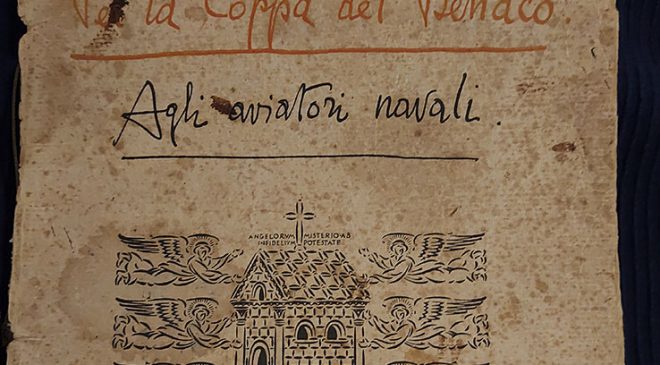 Per la Coppa del Benaco.
Agli aviatori navali.
ANGELORVM MISTERIO·AB
INFIDELIVM POTESTATE